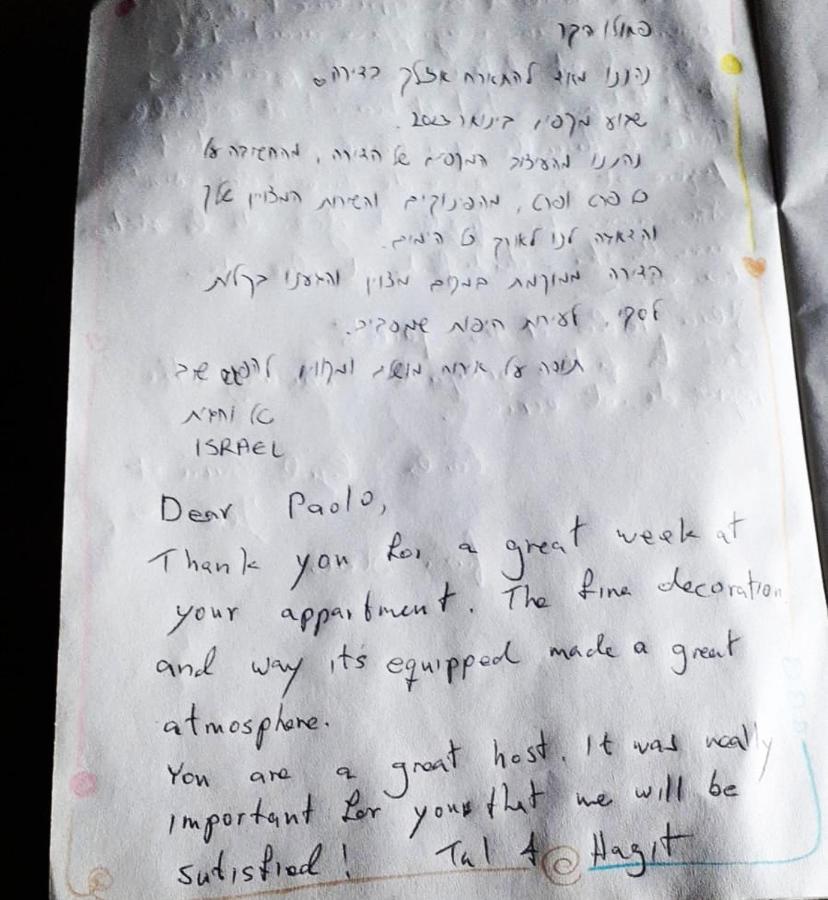 פאולו היקר
נהננו מאוד להתארח אצלך בדירה
שבוע מקסים, בינואר 2023.
נהננו מהעיצוב המקסים של הדירה, מהחשיבה על
כל פרט ופרט, מהפינוקים והשירות המצוין שלך
והדאגה לנו לאורך כל הימים.
הדירה ממוקמת במקום מצוין והגענו בקלות
לסקי, לעיירות היפות שמסביב.
תודה על אירוח מושלם ומקווים שוב
טל וחגית
ISRAEL
Dear Paolo,
Thank you for a great week at
your appartment. The fine decoration
and way it's equipped made a great
atmosphere.
You are a great host. It was really
important for you that we will be
sutisfied! Tal & Hagit